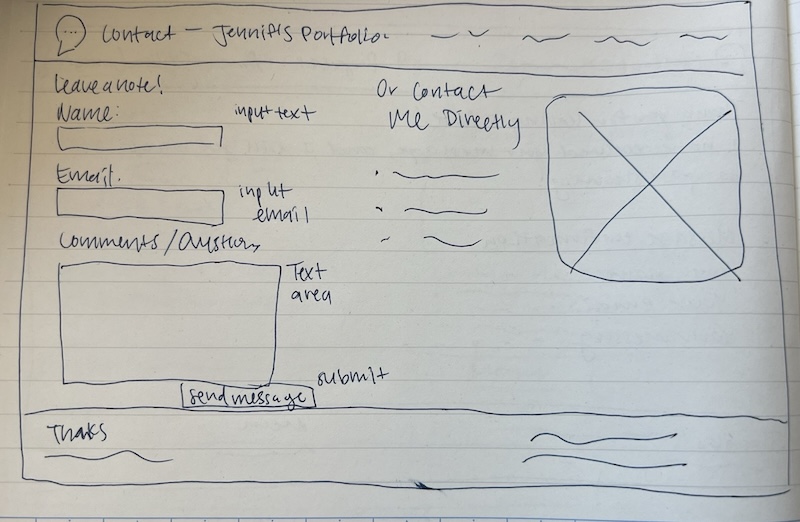 Contact — Jennif's Portfolio
Leave a note!
Name:
input text
Email.
input
email
Comments/
Text
area
send message
submit
Or Contact
Me Directly
Thaks